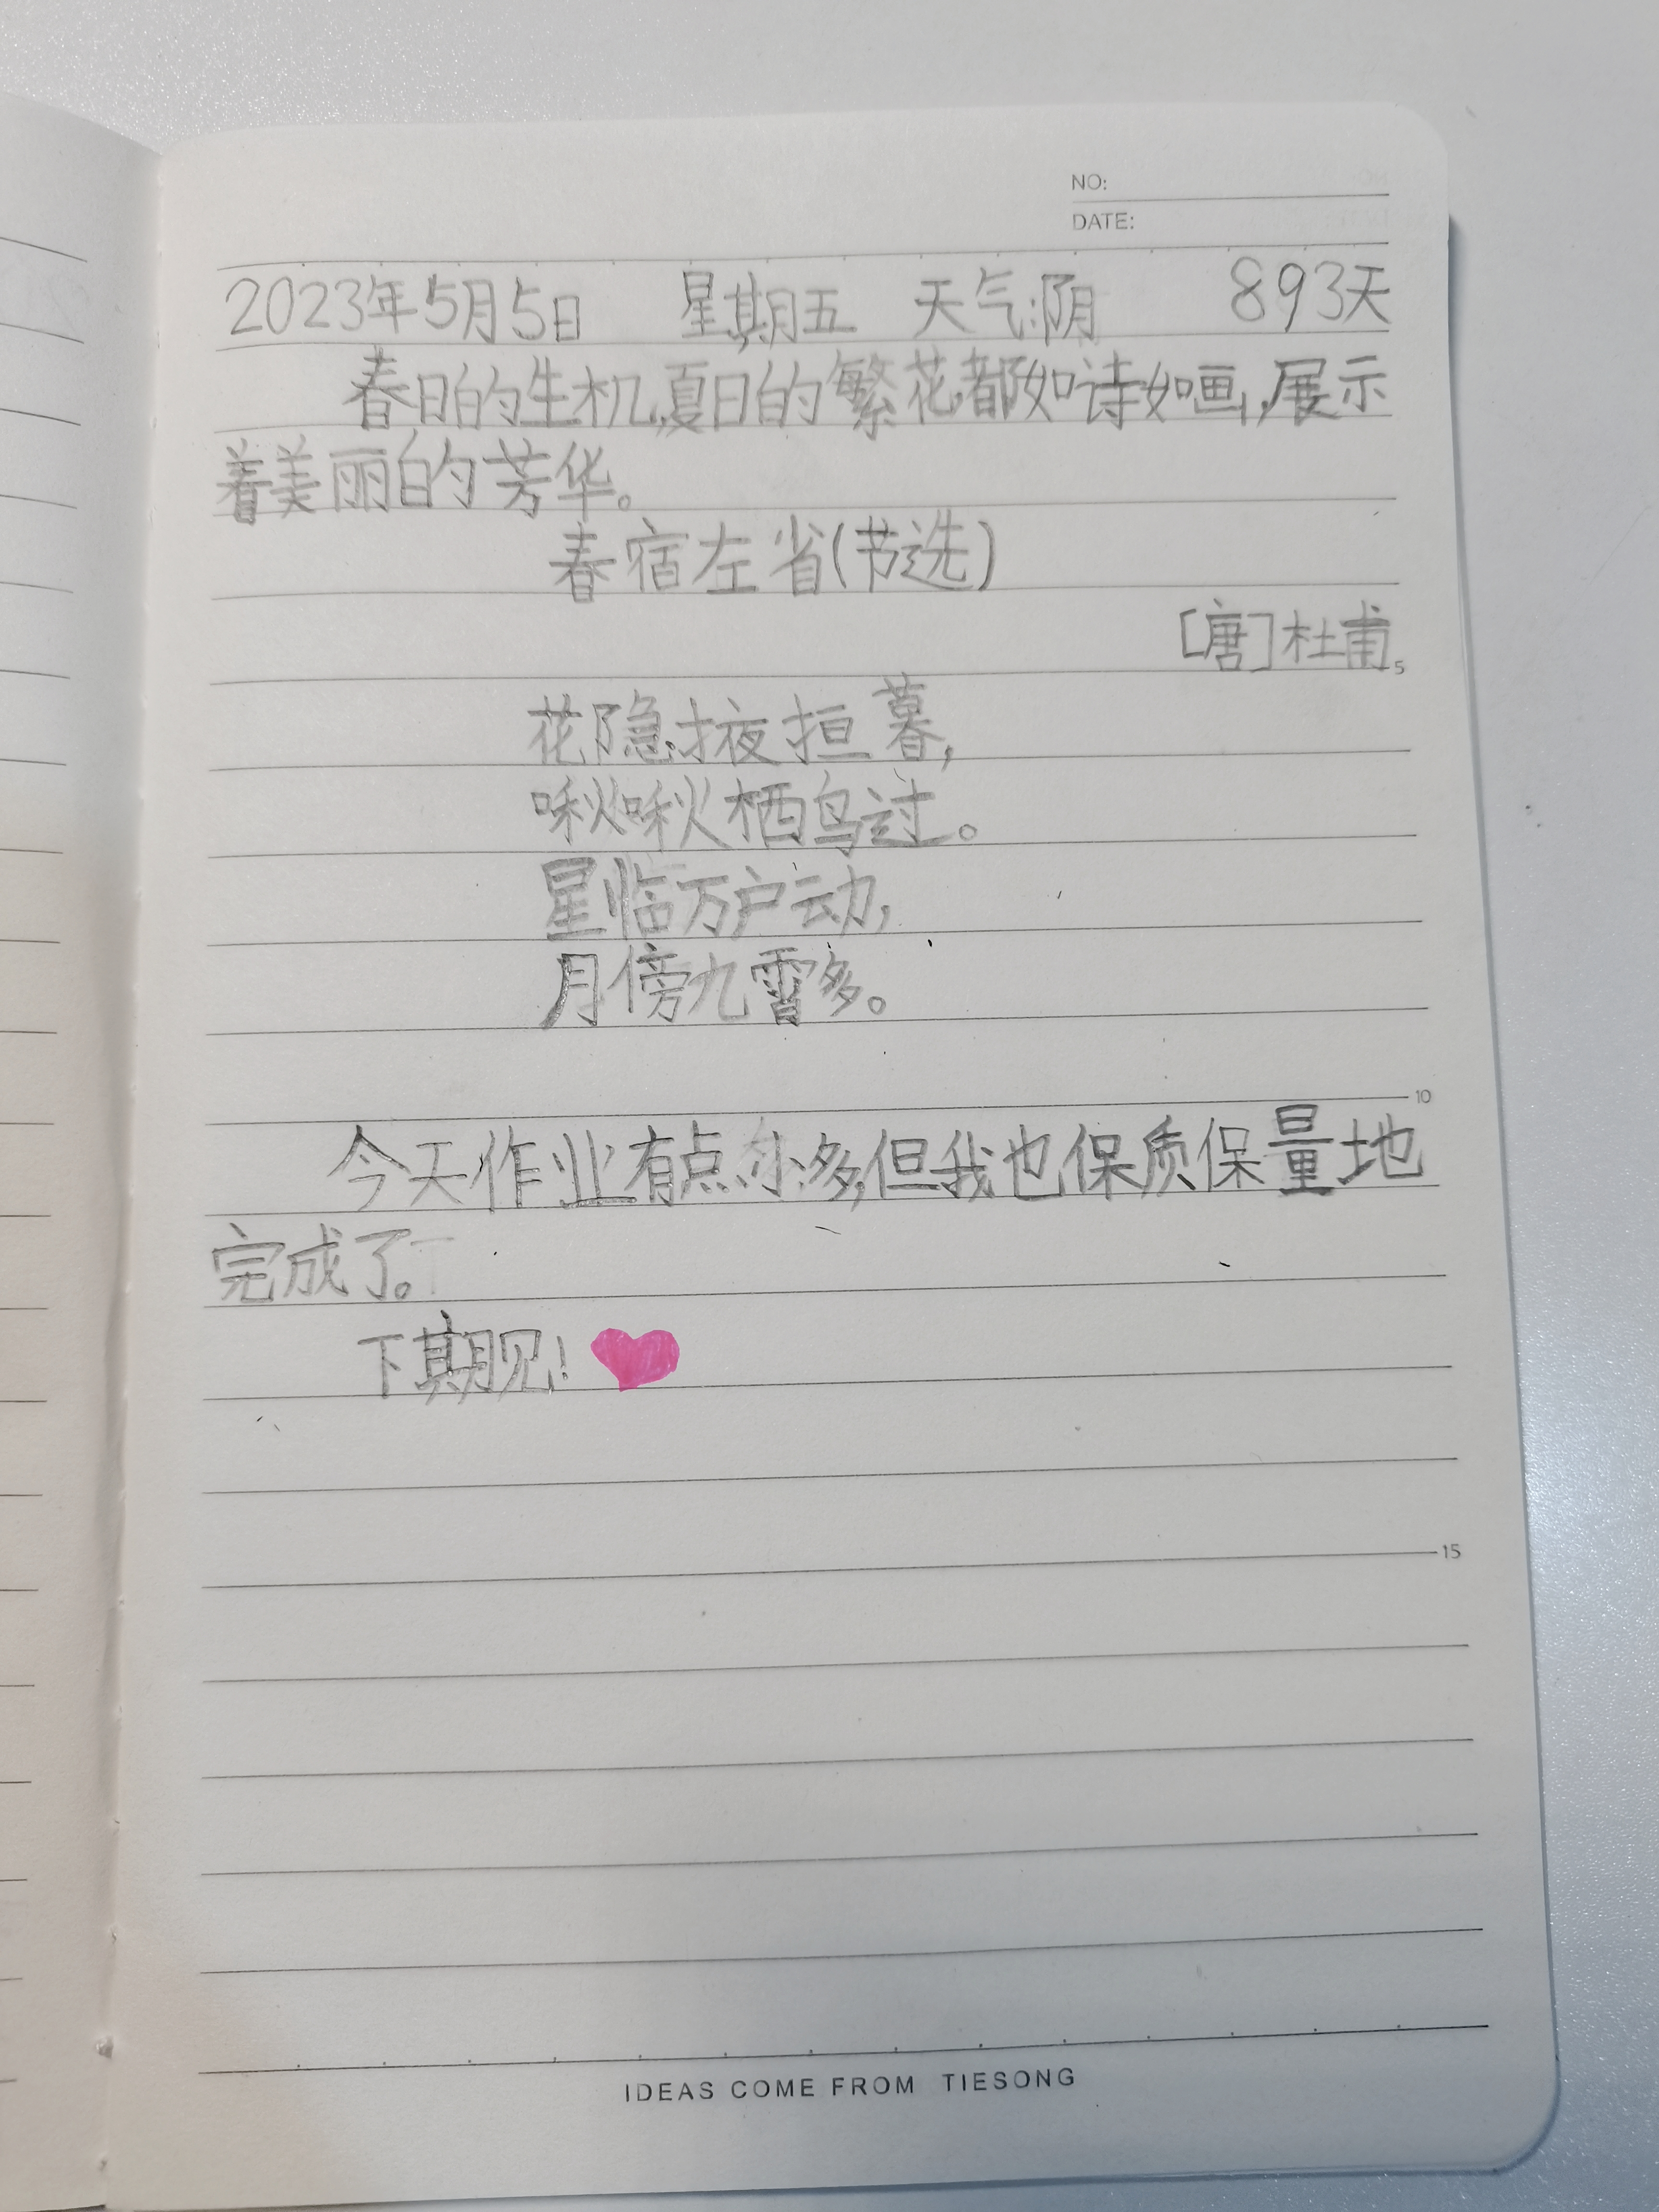 NO:
DATE:
2023年5月5日 星期五 天气:阴 893天
春日的生机,夏日的繁花,都如诗如画,展示
着美丽的芳华。
春宿左省(节选)
[唐]杜甫
5
花隐掖垣暮,
啾啾栖鸟过。
星临万户动,
月傍九霄多。
10
今天作业有点小多,但我也保质保量地
完成了。
下期见!
15
IDEAS COME FROM TIESONG